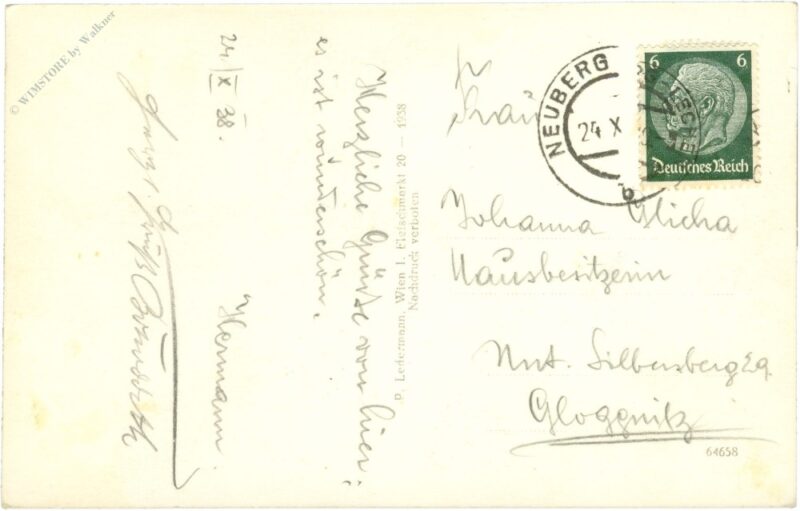 © WIMSTORE by Walkner
24. X 38.
Herzliche Grüße von hier,
es ist wunderschön.
Hermann.
P. Ledermann, Wien I. Fleischmarkt 20 — 1938
Nachdruck verboten.
NEUBERG
24 X
6 6
Deutsches Reich
Frau
Johanna Glicha
Hausbesitzerin
Silbersberg
Gloggnitz
64658